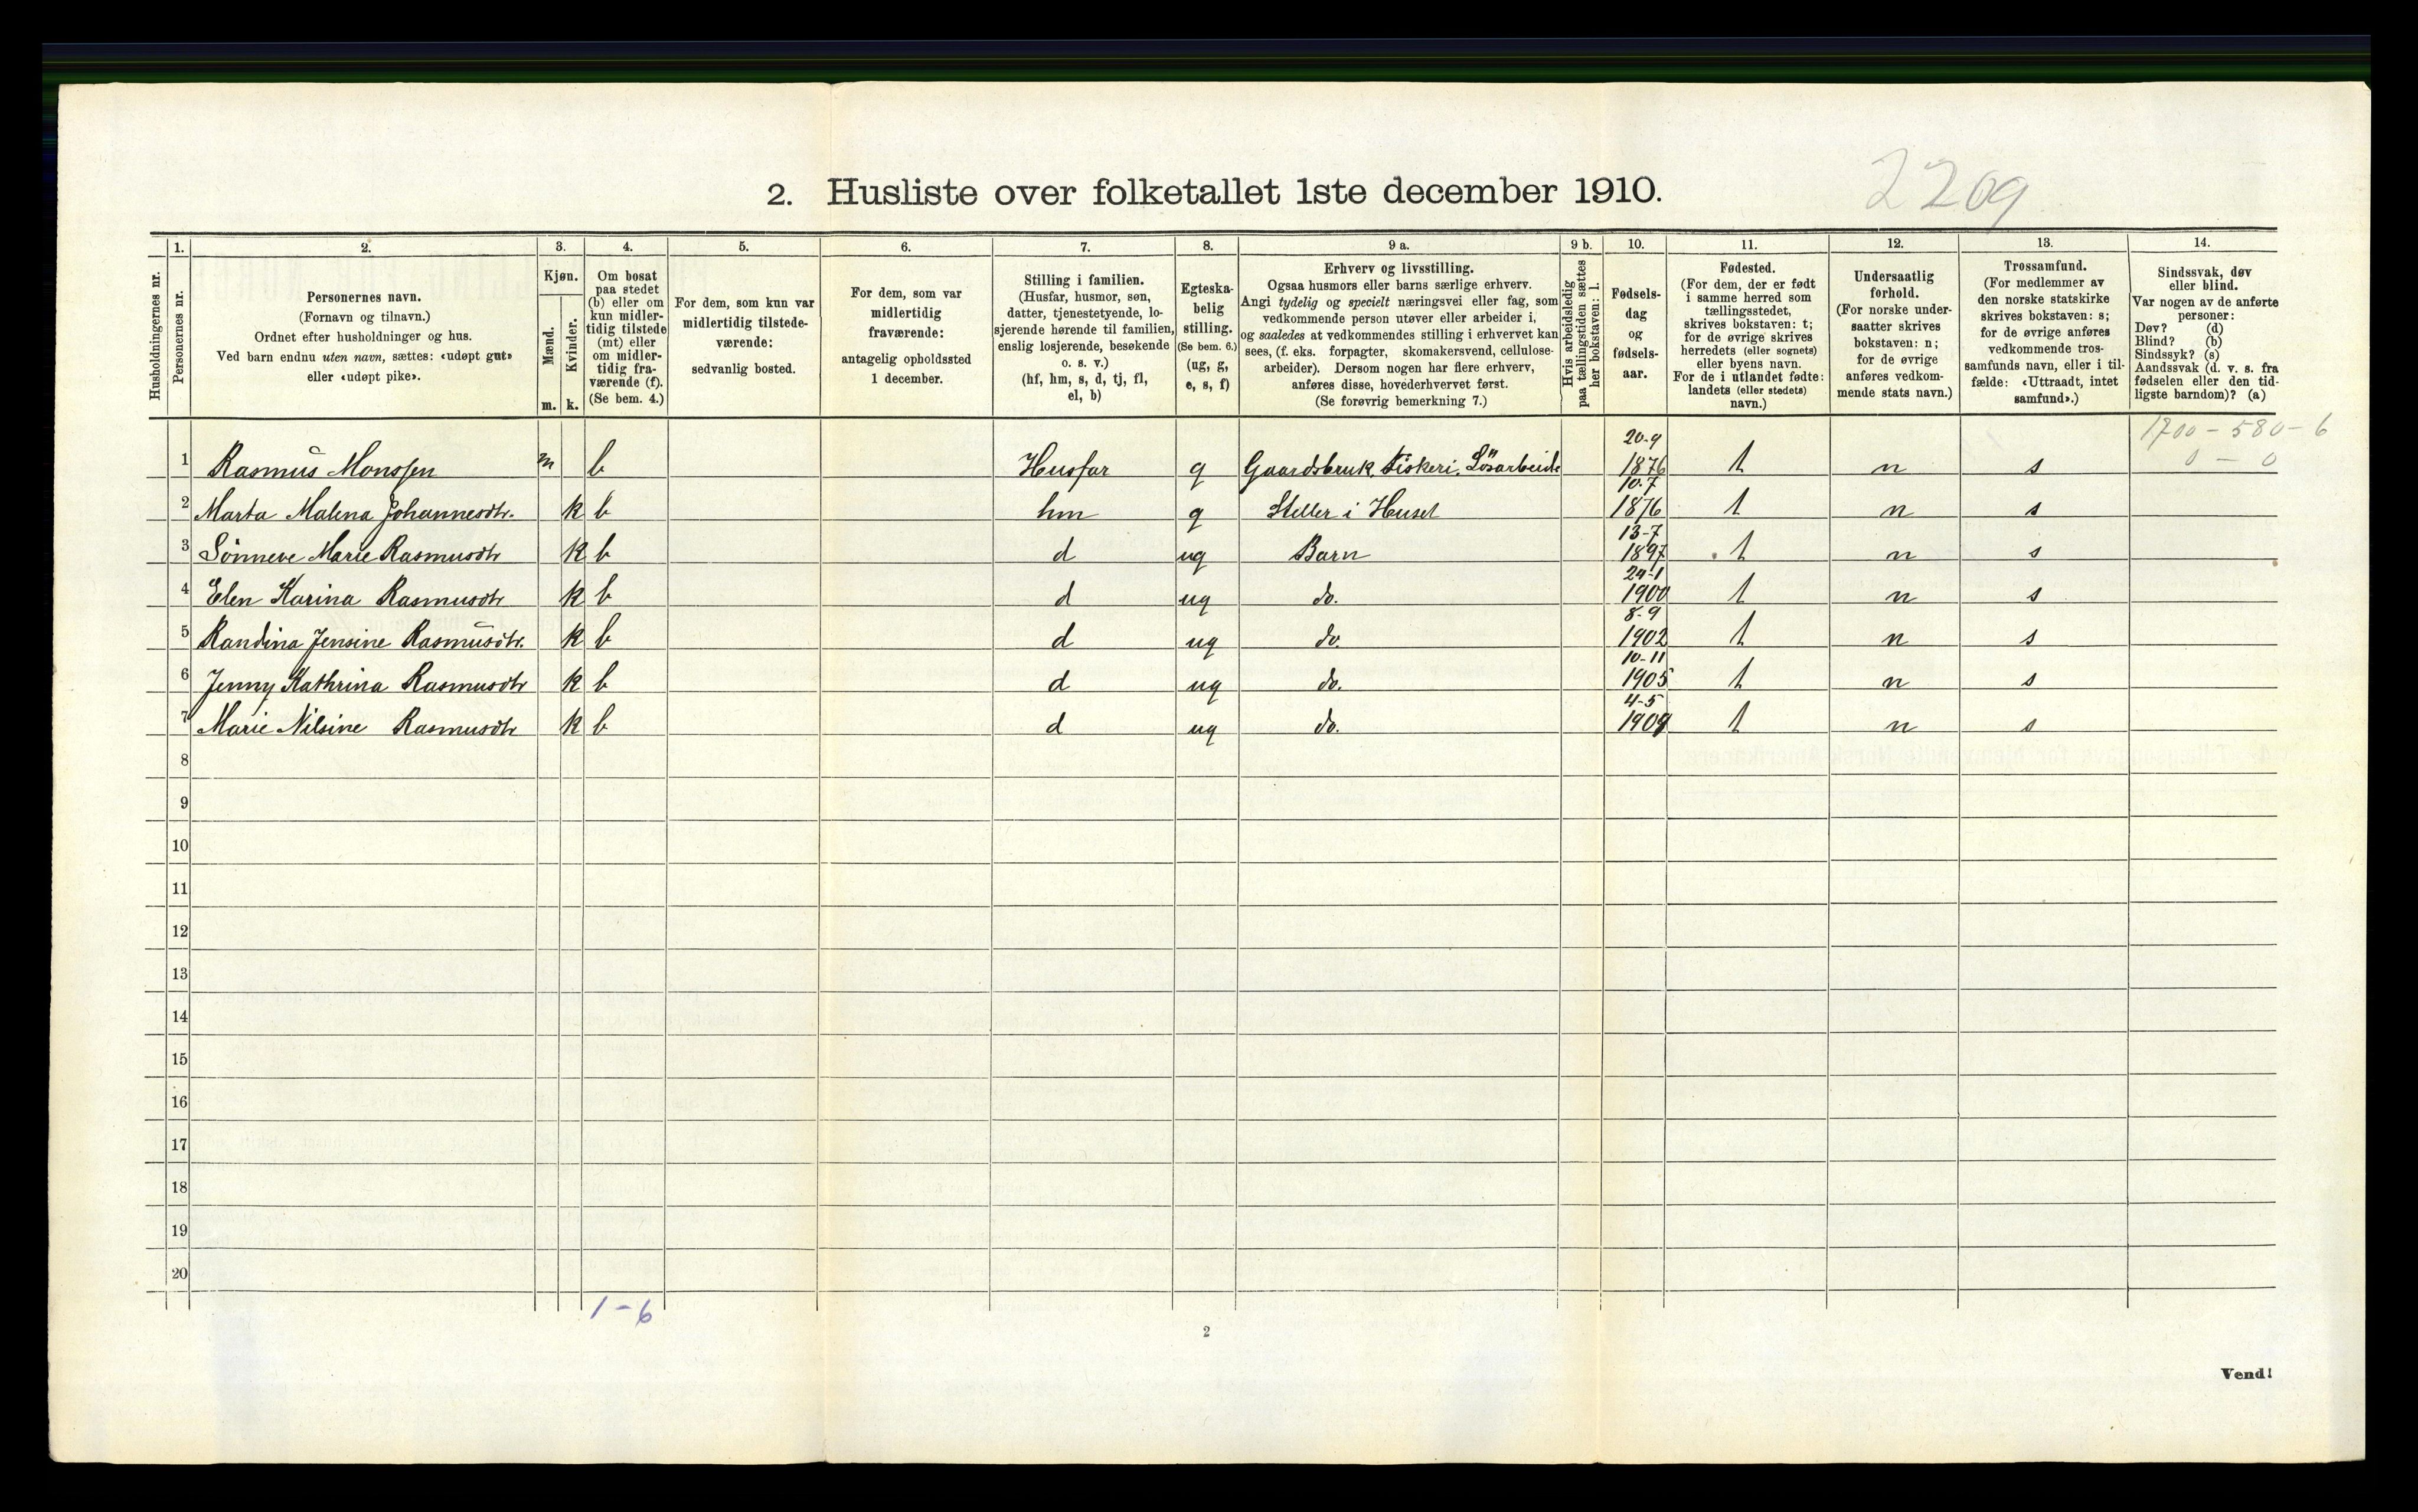 2209
2. Husliste over folketallet 1ste december 1910.
Husholdningernes nr.
1.
Personernes nr.
2.
Personernes navn.
(Fornavn og tilnavn.)
Ordnet efter husholdninger og hus.
Ved barn endnu uten navn, sættes: «udøpt gut»
eller «udøpt pike».
3.
Kjøn.
Mænd.
m.
Kvinder.
k.
4.
Om bosat
paa stedet
(b) eller om
kun midler-
tidig tilstede
(mt) eller
om midler-
tidig fra-
værende (f).
(Se bem. 4.)
5.
For dem, som kun var
midlertidig tilstede-
værende:
sedvanlig bosted.
6.
For dem, som var
midlertidig
fraværende:
antagelig opholdssted
1 december.
7.
Stilling i familien.
(Husfar, husmor, søn,
datter, tjenestetyende, lo-
sjerende hørende til familien,
enslig losjerende, besøkende
o. s. v.)
(hf, hm, s, d, tj, fl,
el, b)
8.
Egteska-
belig
stilling.
(Se bem. 6.)
(ug, g,
e, s, f)
9 a.
Erhverv og livsstilling.
Ogsaa husmors eller barns særlige erhverv.
Angi tydelig og specielt næringsvei eller fag, som
vedkommende person utøver eller arbeider i,
og saaledes at vedkommendes stilling i erhvervet kan
sees, (f. eks. forpagter, skomakersvend, cellulose-
arbeider). Dersom nogen har flere erhverv,
anføres disse, hovederhvervet først.
(Se forøvrig bemerkning 7.)
9 b.
Hvis arbeidsledig
paa tællingstiden sættes
her bokstaven: l.
10.
Fødsels-
dag
og
fødsels-
aar.
11.
Fødested.
(For dem, der er født
i samme herred som
tællingsstedet,
skrives bokstaven: t;
for de øvrige skrives
herredets (eller sognets)
eller byens navn.
For de i utlandet fødte:
landets (eller stedets)
navn.)
12.
Undersaatlig
forhold.
(For norske under-
saatter skrives
bokstaven: n;
for de øvrige
anføres vedkom-
mende stats navn.)
13.
Trossamfund.
(For medlemmer av
den norske statskirke
skrives bokstaven: s;
for de øvrige anføres
vedkommende tros-
samfunds navn, eller i til-
fælde: «Uttraadt, intet
samfund».)
14.
Sindssvak, døv
eller blind.
Var nogen av de anførte
personer:
Døv? (d)
Blind? (b)
Sindssyk? (s)
Aandssvak (d. v. s. fra
fødselen eller den tid-
ligste barndom)? (a)
1700 - 580 - 6
0 - 0
1 Rasmus Monssen m b Husfar g Gaardsbruk, Fiskeri, Lösarbeide 20-9 1876 t n s
2 Marta Malena Johannesdtr. k b hm g Steller i Huset 10-7 1876 t n s
3 Sönneve Marie Rasmusdtr k b d ug Barn 13-7 1897 t n s
4 Elen Karina Rasmusdtr k b d ug do. 24-1 1900 t n s
5 Randina Jensine Rasmusdtr. k b d ug do. 8-9 1902 t n s
6 Jenny Kathrina Rasmusdtr k b d ug do. 10-11 1905 t n s
7 Marie Nilsine Rasmusdtr k b d ug do. 4-5 t n s
8
9
10
11
12
13
14
15
16
17
18
19
20
1-6
2
Vend!